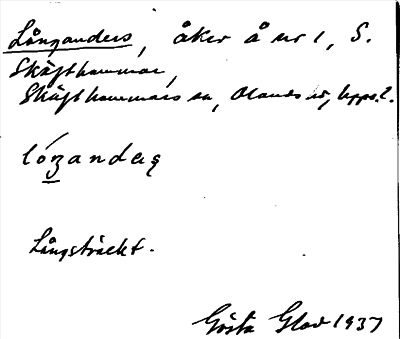 Långanders, åker å nr 1, S.
Skäfthammar,
Skäfthammars sn, Olands hd, Upps. l.
Långsträckt.
Gösta Glad 1937